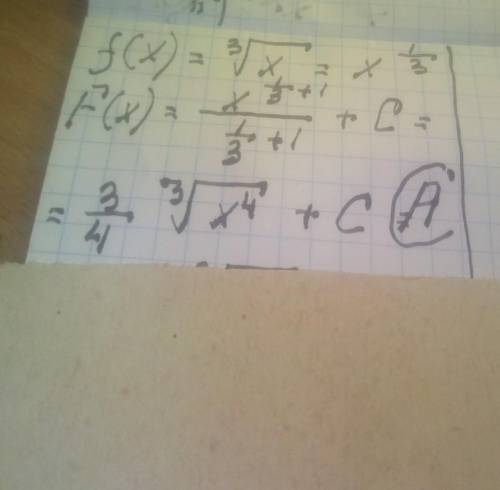 f(x) = ∛x = x^(1/3)
F(x) = x^(1/3 + 1) / (1/3 + 1) + C =
= 3/4 ∛(x^4) + C A